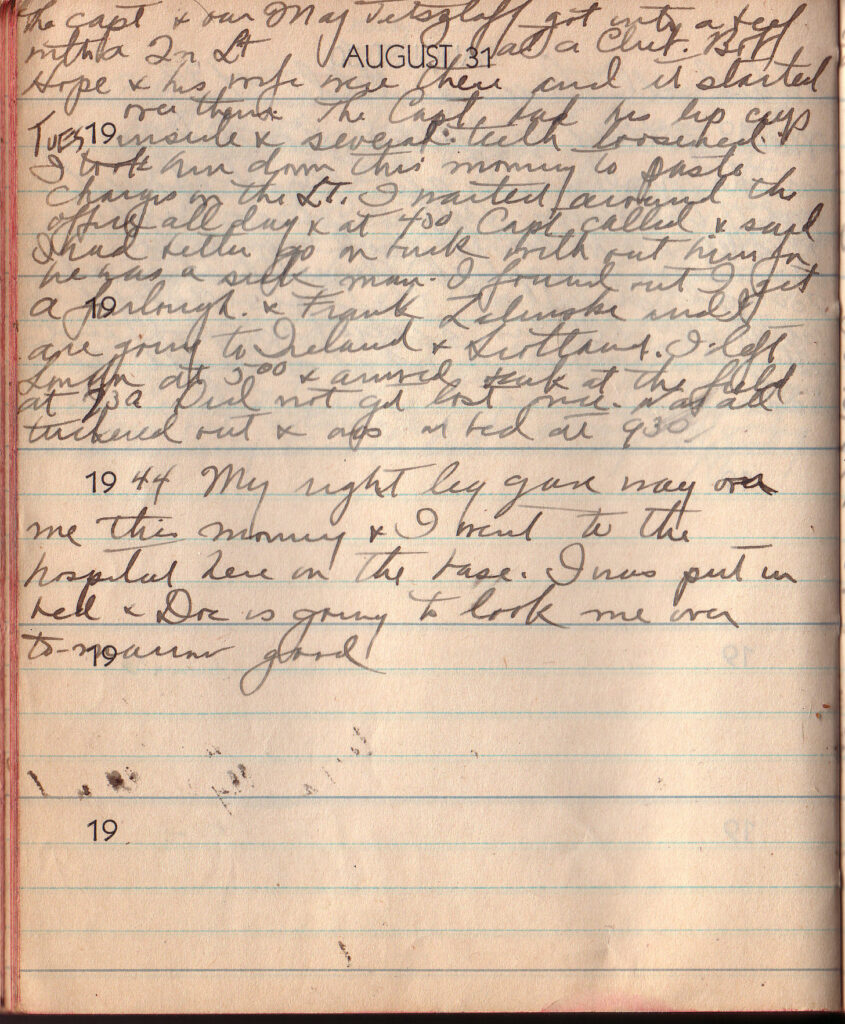 The Capt & our Maj Tetszlaff got into a beef
with a 2n Lt at a Club. Bob
AUGUST 31
Hope & his wife were there and it started
over them. The Capt had his lip cup
TUES 19 inside & several teeth loosened.
I took him down this morning to paste
charges on the Lt. I waited around the
office all day & at 400 Capt called & said
I had better go on back with out him for
he was a sick man. I found out I get
a 19 furlough. & Frank Zelinske and I
are going to Ireland & Scotland. I left
London at 500 & arrived back at the field
at 730 Did not get lost once. Was all
tuckered out & was in bed at 930
19 44 My right leg gave way over
me this morning & I went to the
hospital here on the base. I was put in
bed & Doc is going to look me over
to-morrow good
19
19